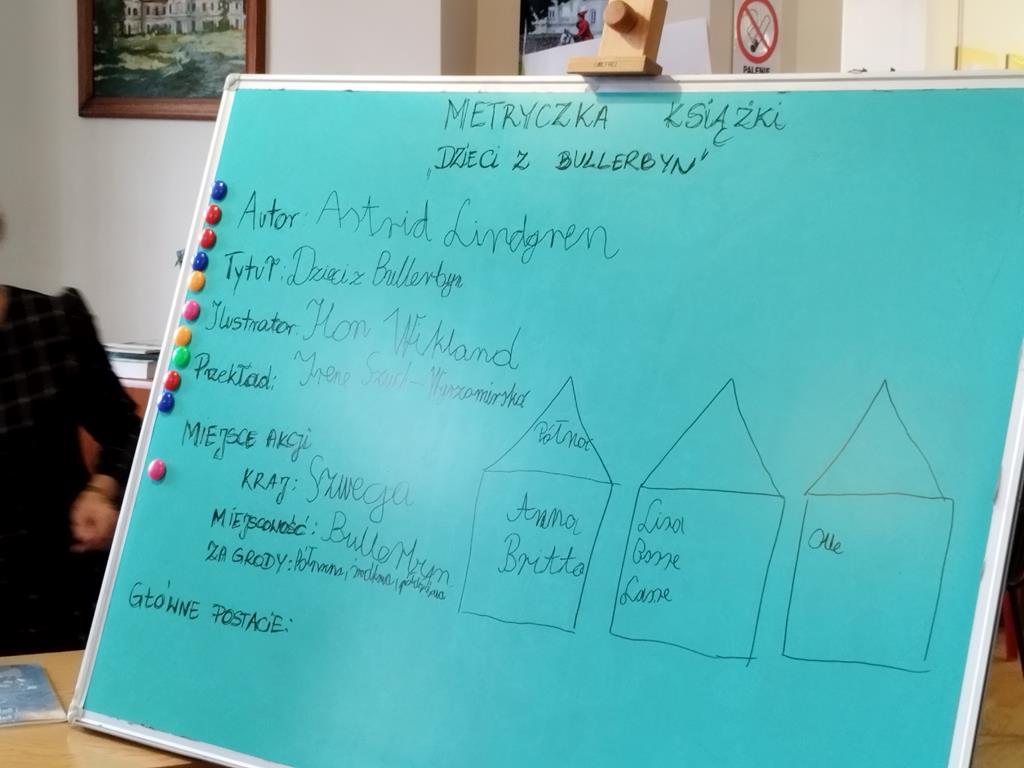 PALENIE
METRYCZKA KSIĄŻKI
„DZIECI Z BULLERBYN"
Autor: Astrid Lindgren
Tytuł: Dzieci z Bullerbyn
Ilustrator: Ilon Wikland
Przekład: Irene Szuch-Wyszomirska
MIEJSCE AKCJI
KRAJ: Szwecja
MIEJSCOWOŚĆ: Bullerbyn
ZAGRODY: Północna, środkowa,
GŁÓWNE POSTACIE:
Północ
Anna
Britta
Lisa
Bosse
Lasse
Olle